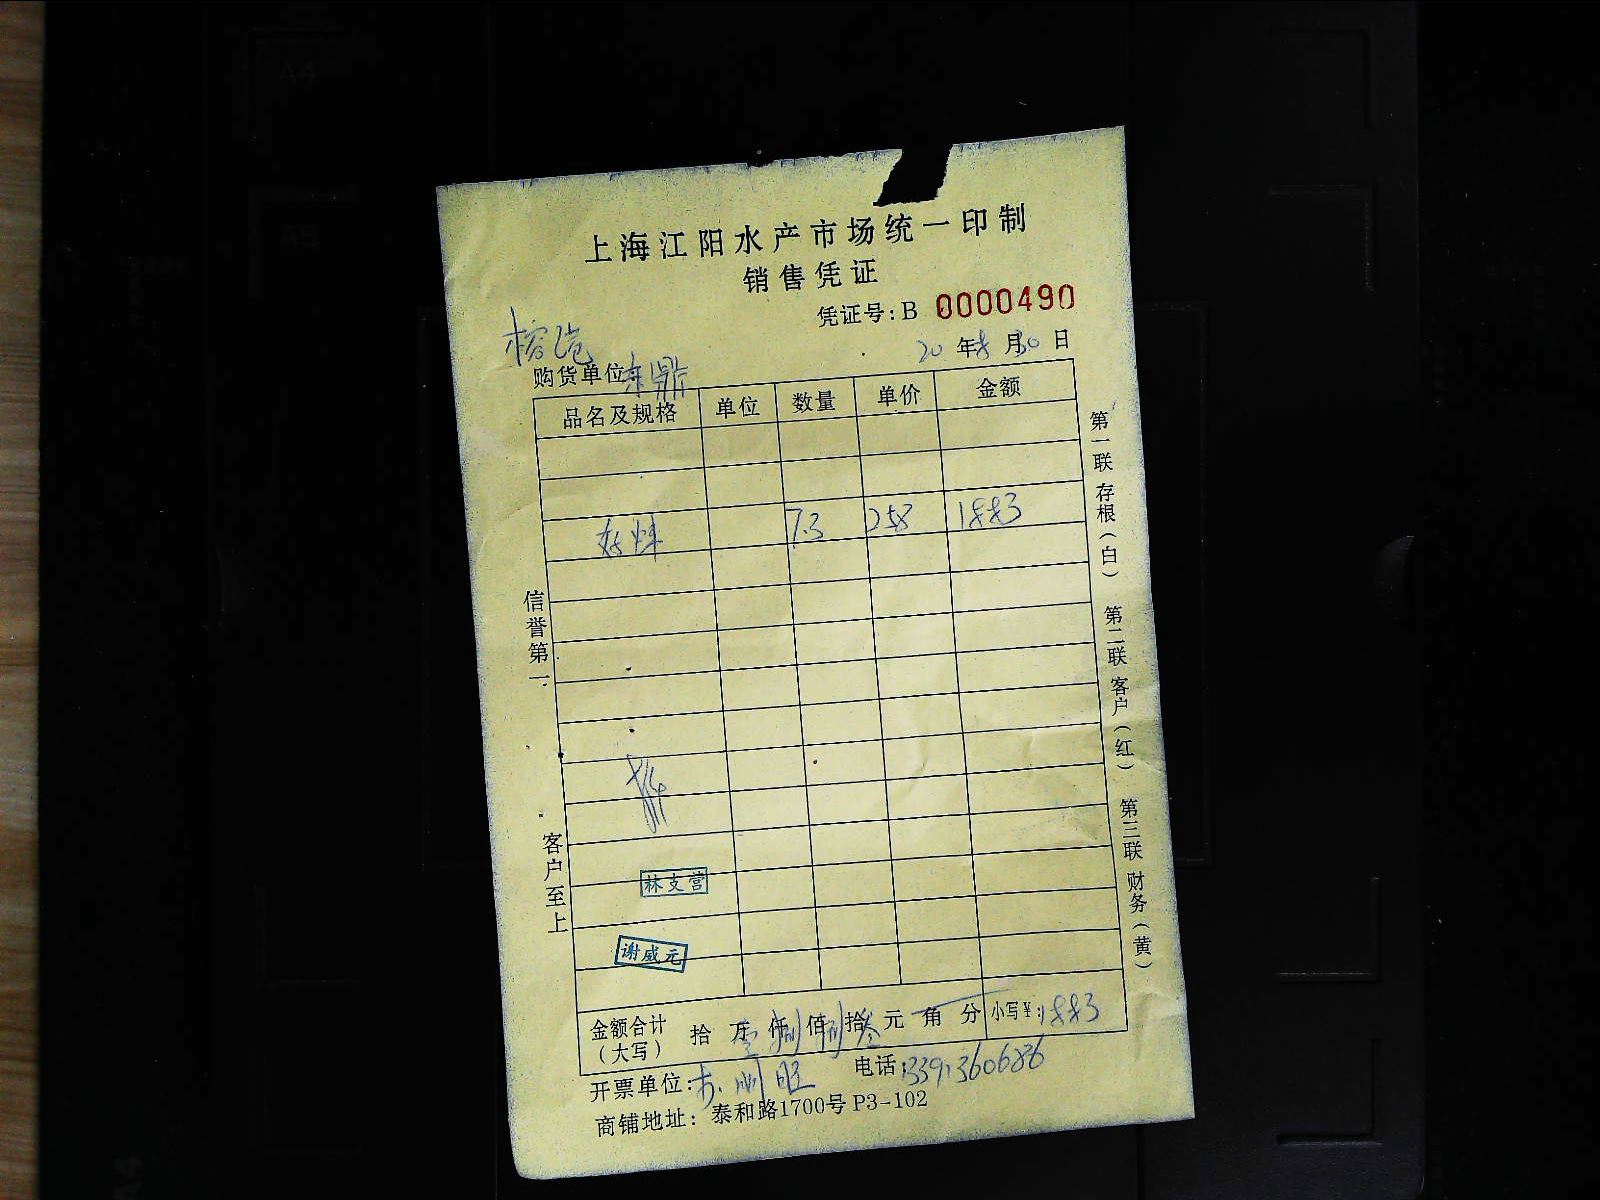 上海江阳水产市场统一印制
销售凭证
凭证号:B 0000490
20 年 8 月 30 日
购货单位 东鼎
品名及规格 单位 数量 单价 金额
7.3 258 1883
信誉第一
客户至上
第一联 存根(白) 第二联 客户(红) 第三联 财务(黄)
林支营
谢威元
金额合计(大写) 拾 万 壹仟 捌佰 捌拾 叁元 角 分 小写¥:1883
开票单位: 电话:
商铺地址: 泰和路1700号 P3-102